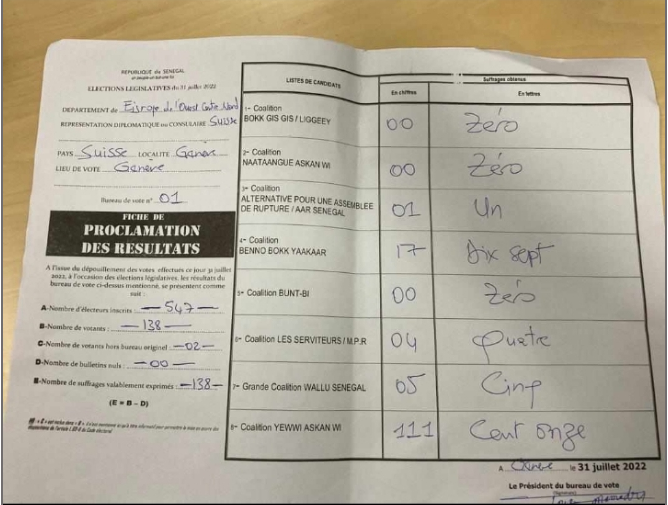 REPUBLIQUE du SENEGAL
ELECTIONS LEGISLATIVES du 31 juillet 2022
DEPARTEMENT de Europe de l'Ouest Centre Nord
REPRESENTATION DIPLOMATIQUE ou CONSULAIRE Suisse
PAYS Suisse LOCALITE Genève
LIEU DE VOTE Genève
Bureau de vote n° 01
FICHE DE
PROCLAMATION
DES RESULTATS
A l'issue du dépouillement des votes effectués ce jour 31 juillet
2022, à l'occasion des élections législatives, les résultats du
bureau de vote ci-dessus mentionné, se présentent comme
suit :
A-Nombre d'électeurs inscrits : 547
B-Nombre de votants : 138
C-Nombre de votants hors bureau originel : 02
D-Nombre de bulletins nuls : 00
E-Nombre de suffrages valablement exprimés : 138
(E = B – D)
LISTES DE CANDIDATS
Suffrages obtenus
En chiffres
En lettres
1- Coalition
BOKK GIS GIS / LIGGEEY
00 Zéro
2- Coalition
NAATAANGUE ASKAN WI
00 Zéro
3- Coalition
ALTERNATIVE POUR UNE ASSEMBLEE
DE RUPTURE / AAR SENEGAL
01 Un
4- Coalition
BENNO BOKK YAAKAAR
17 Dix sept
5- Coalition BUNT-BI
00 Zéro
6- Coalition LES SERVITEURS / M.P.R
04 Quatre
7- Grande Coalition WALLU SENEGAL
05 Cinq
8- Coalition YEWWI ASKAN WI
111 Cent onze
A le 31 juillet 2022
Le Président du bureau de vote